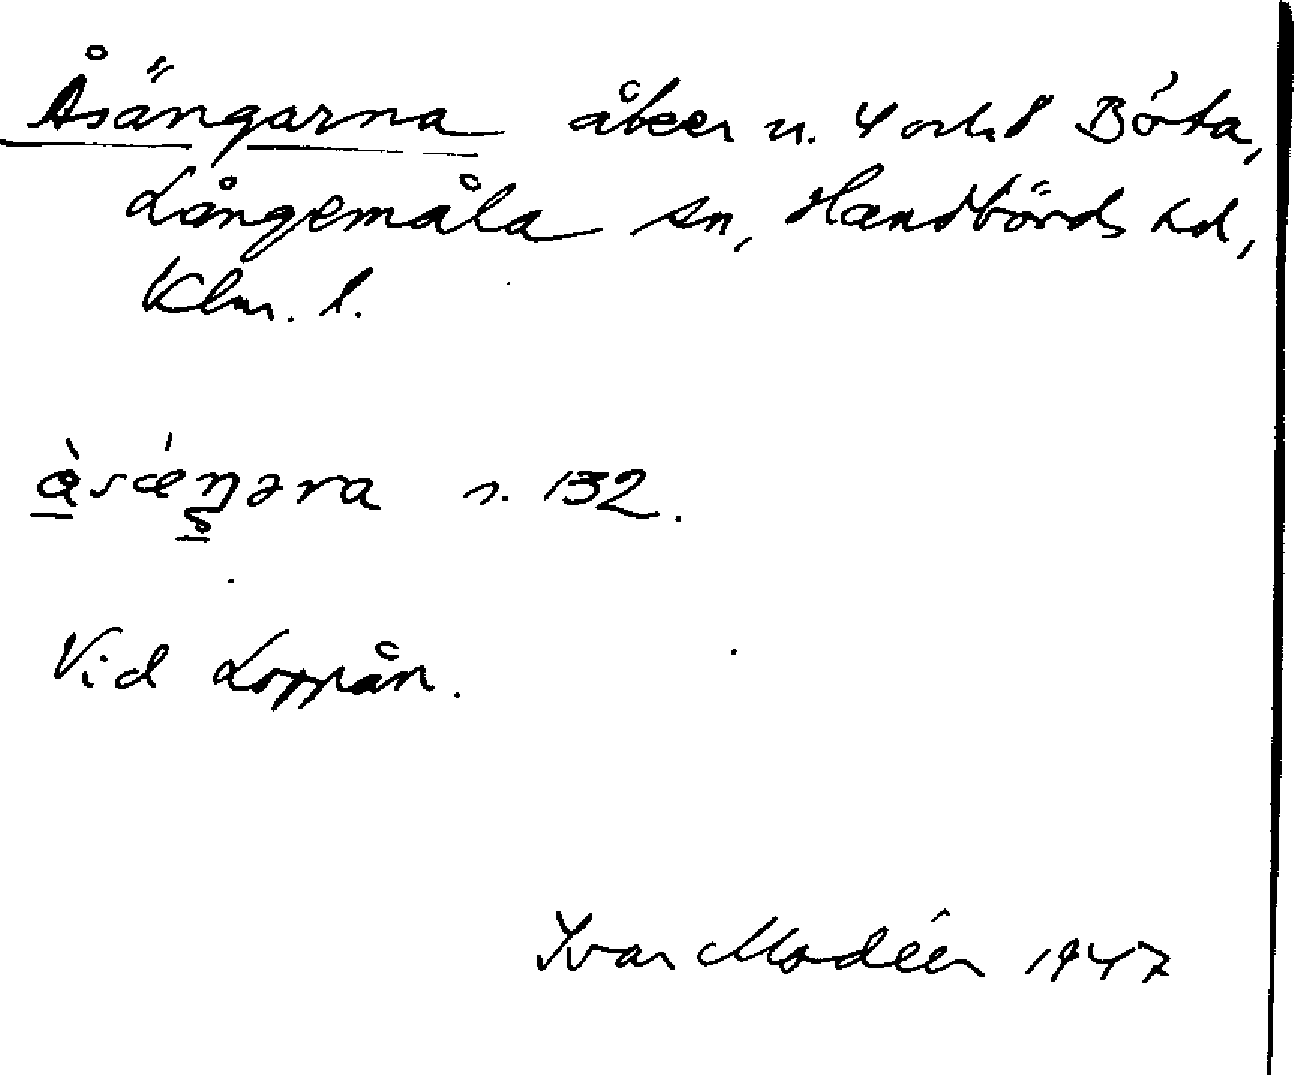 Åsängarna åker u. 4 och 8 Böta,
Långemåla sn, Handbörds hd,
Klm. l.
s. 132.
Vid Loppån.
Ivar Modéer 1947